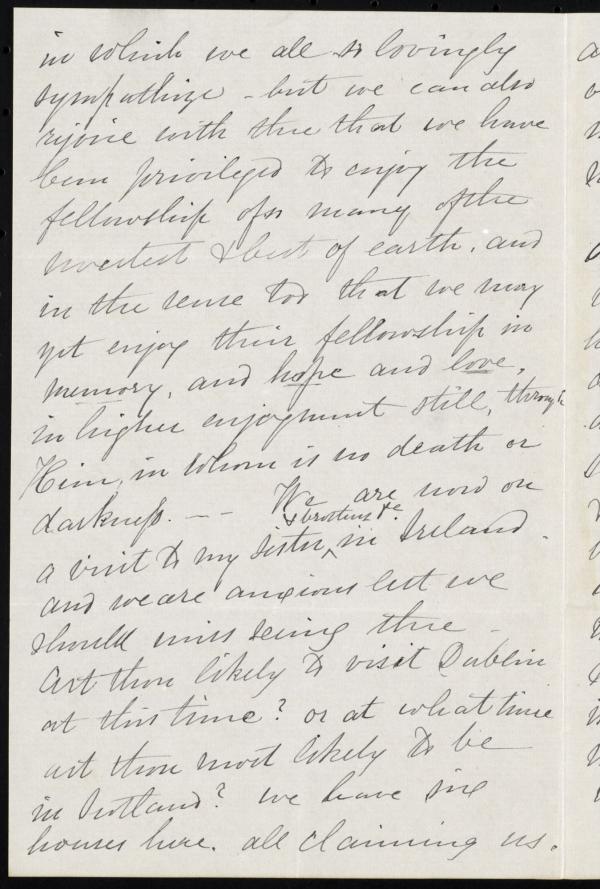 in which we all so lovingly
sympathize - but we can also
rejoice with thee that we have
been privileged to enjoy the
fellowship of so many of the
sweetest & best of earth, and
in the sense too that we may
yet enjoy their fellowship in
memory, and hope and love,
in higher enjoyment still, through
Him, in whom is no death or
darkness. -- We are now on
a visit to my sister, & brothers &c. in Ireland -
and we are anxious lest we
should miss seeing thee -
Art thou likely to visit Dublin
at this time? or at what time
art thou most likely to be
in Scotland? we have six
houses here. all claiming us.